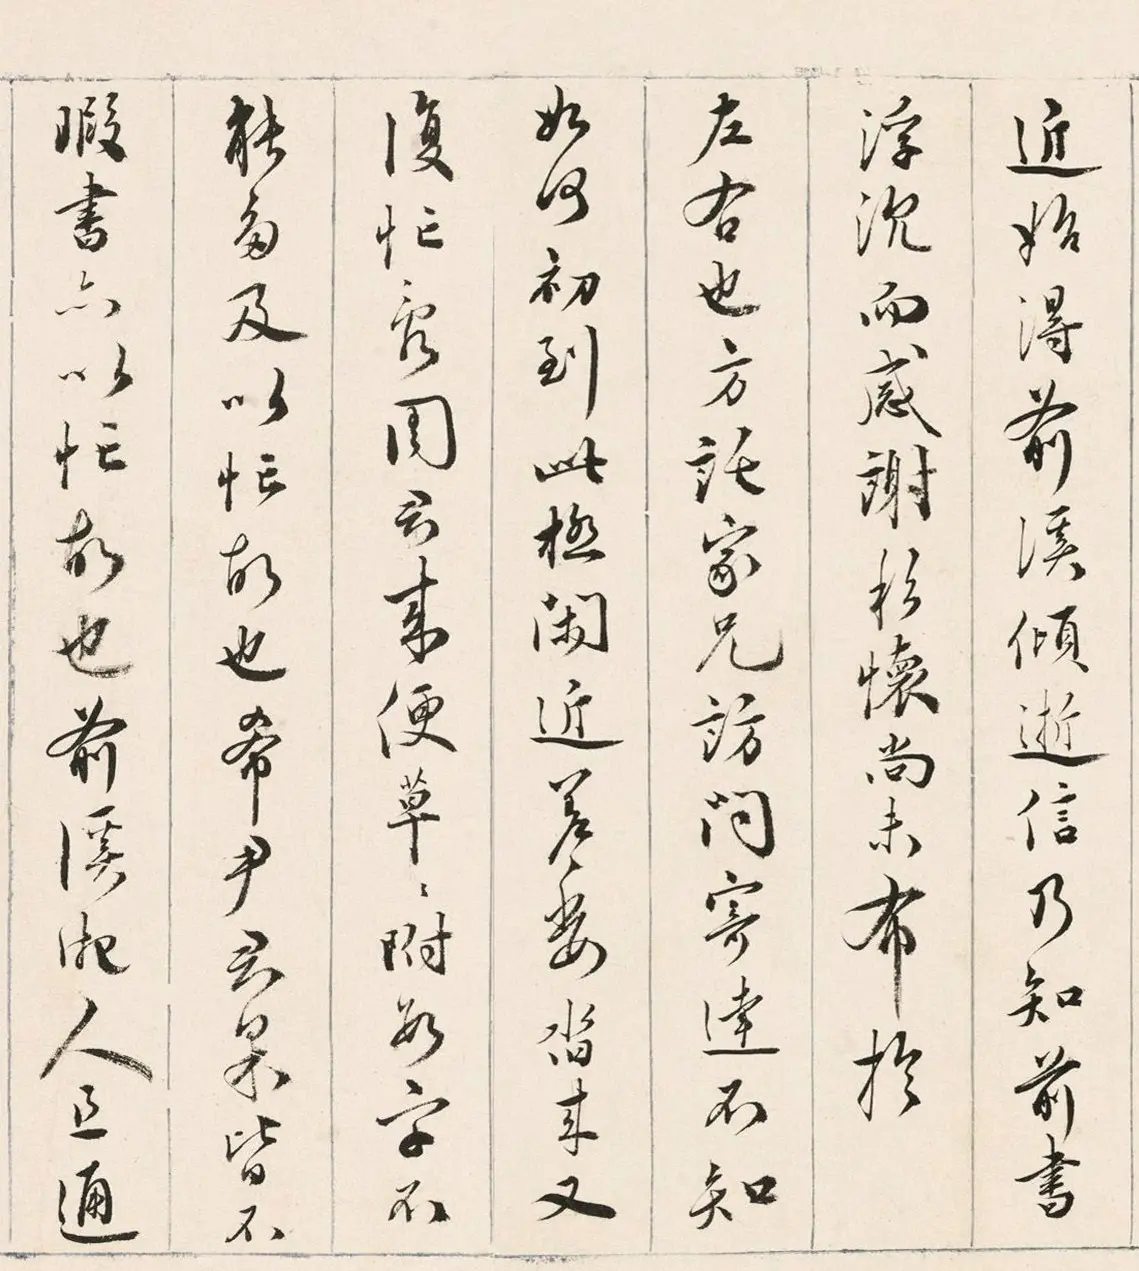 近始得前溪傾逝信乃知前書
浮沉而感謝於懷尚未布於
左右也方託家兄訪問寄達不知
如何初到此極閑近差委沓來又
復忙窘周君來便草〻附數字不
能多及以忙故也希尹君杲皆不
暇書亦以忙故也前溪人且通